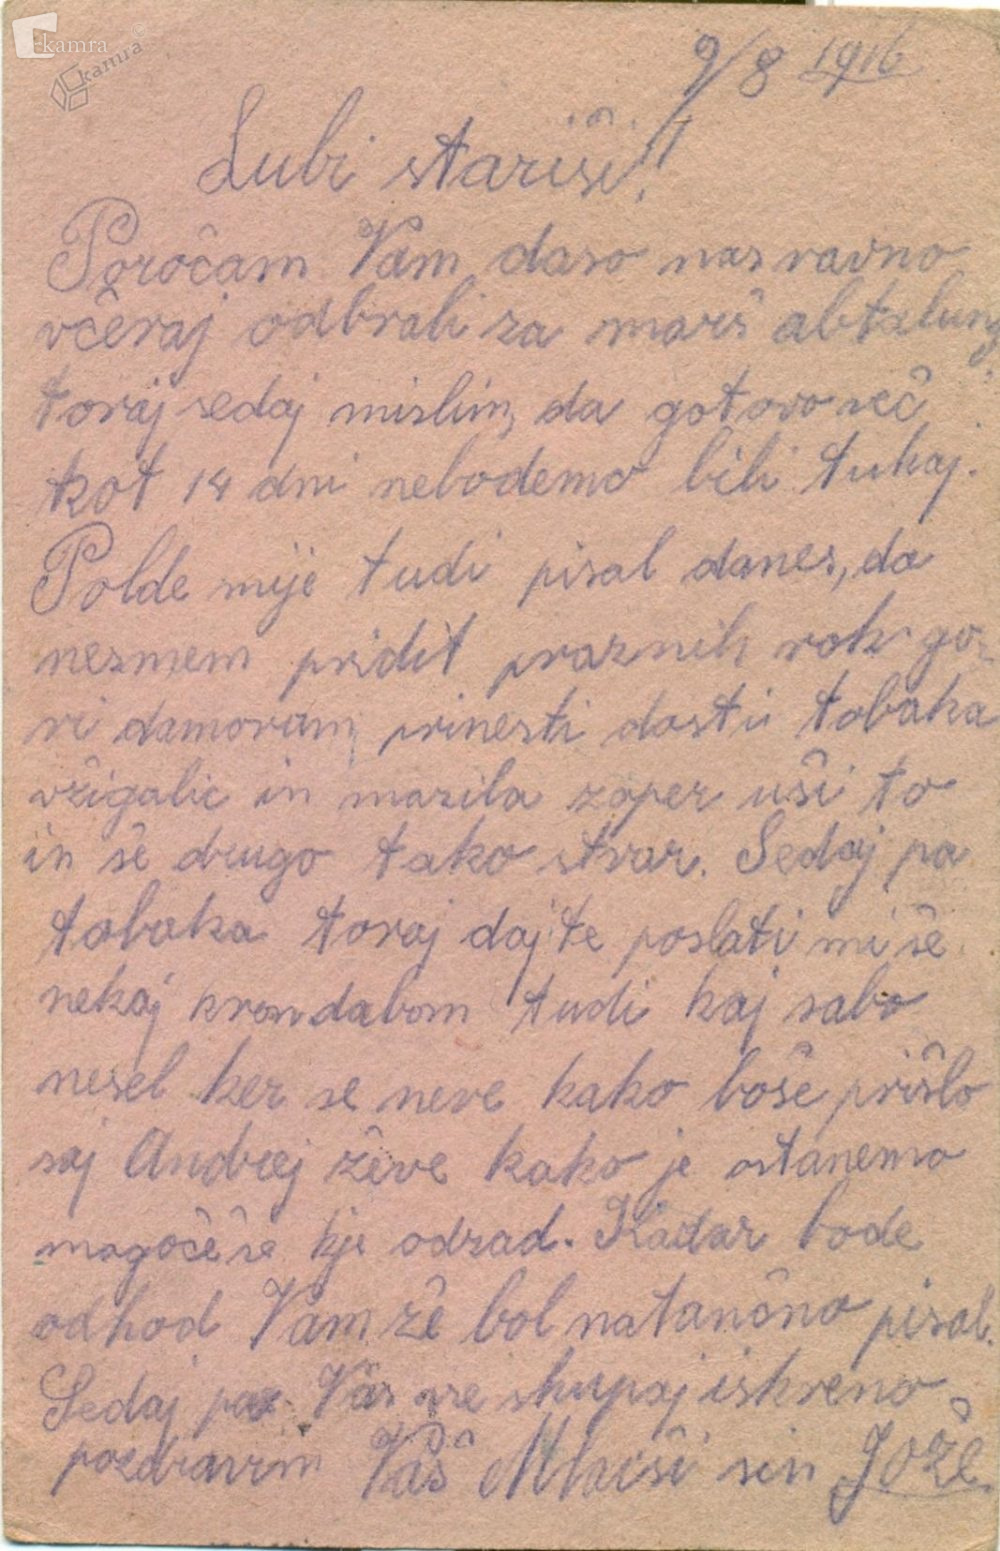 kamra ©
kamra
9/8 1916
Lubi stariši!!
Poročam Vam daso nas ravno
včeraj odbrali za marš abtalung
toraj sedaj mislim, da gotovo več
kot 14 dni nebodemo bili tukaj.
Polde mije tudi pisal danes, da
nesmem pridit praznih rok go-
ri damoram prinesti dosti tobaka
vžigalic in mazila zoper uši to
in še drugo tako stvar. Sedaj pa
tobaka toraj dajte poslati mi še
nekaj kron dabom tudi kaj sabo
nesel ker se neve kako boše prišlo
saj Andrej ževe kako je ostanemo
mogočé še kje odzad. Kadar bode
odhod Vam že bol natančno pisal.
Sedaj pa Vas vse skupaj iskreno
pozdravim Vaš Mlaiši sin Jože